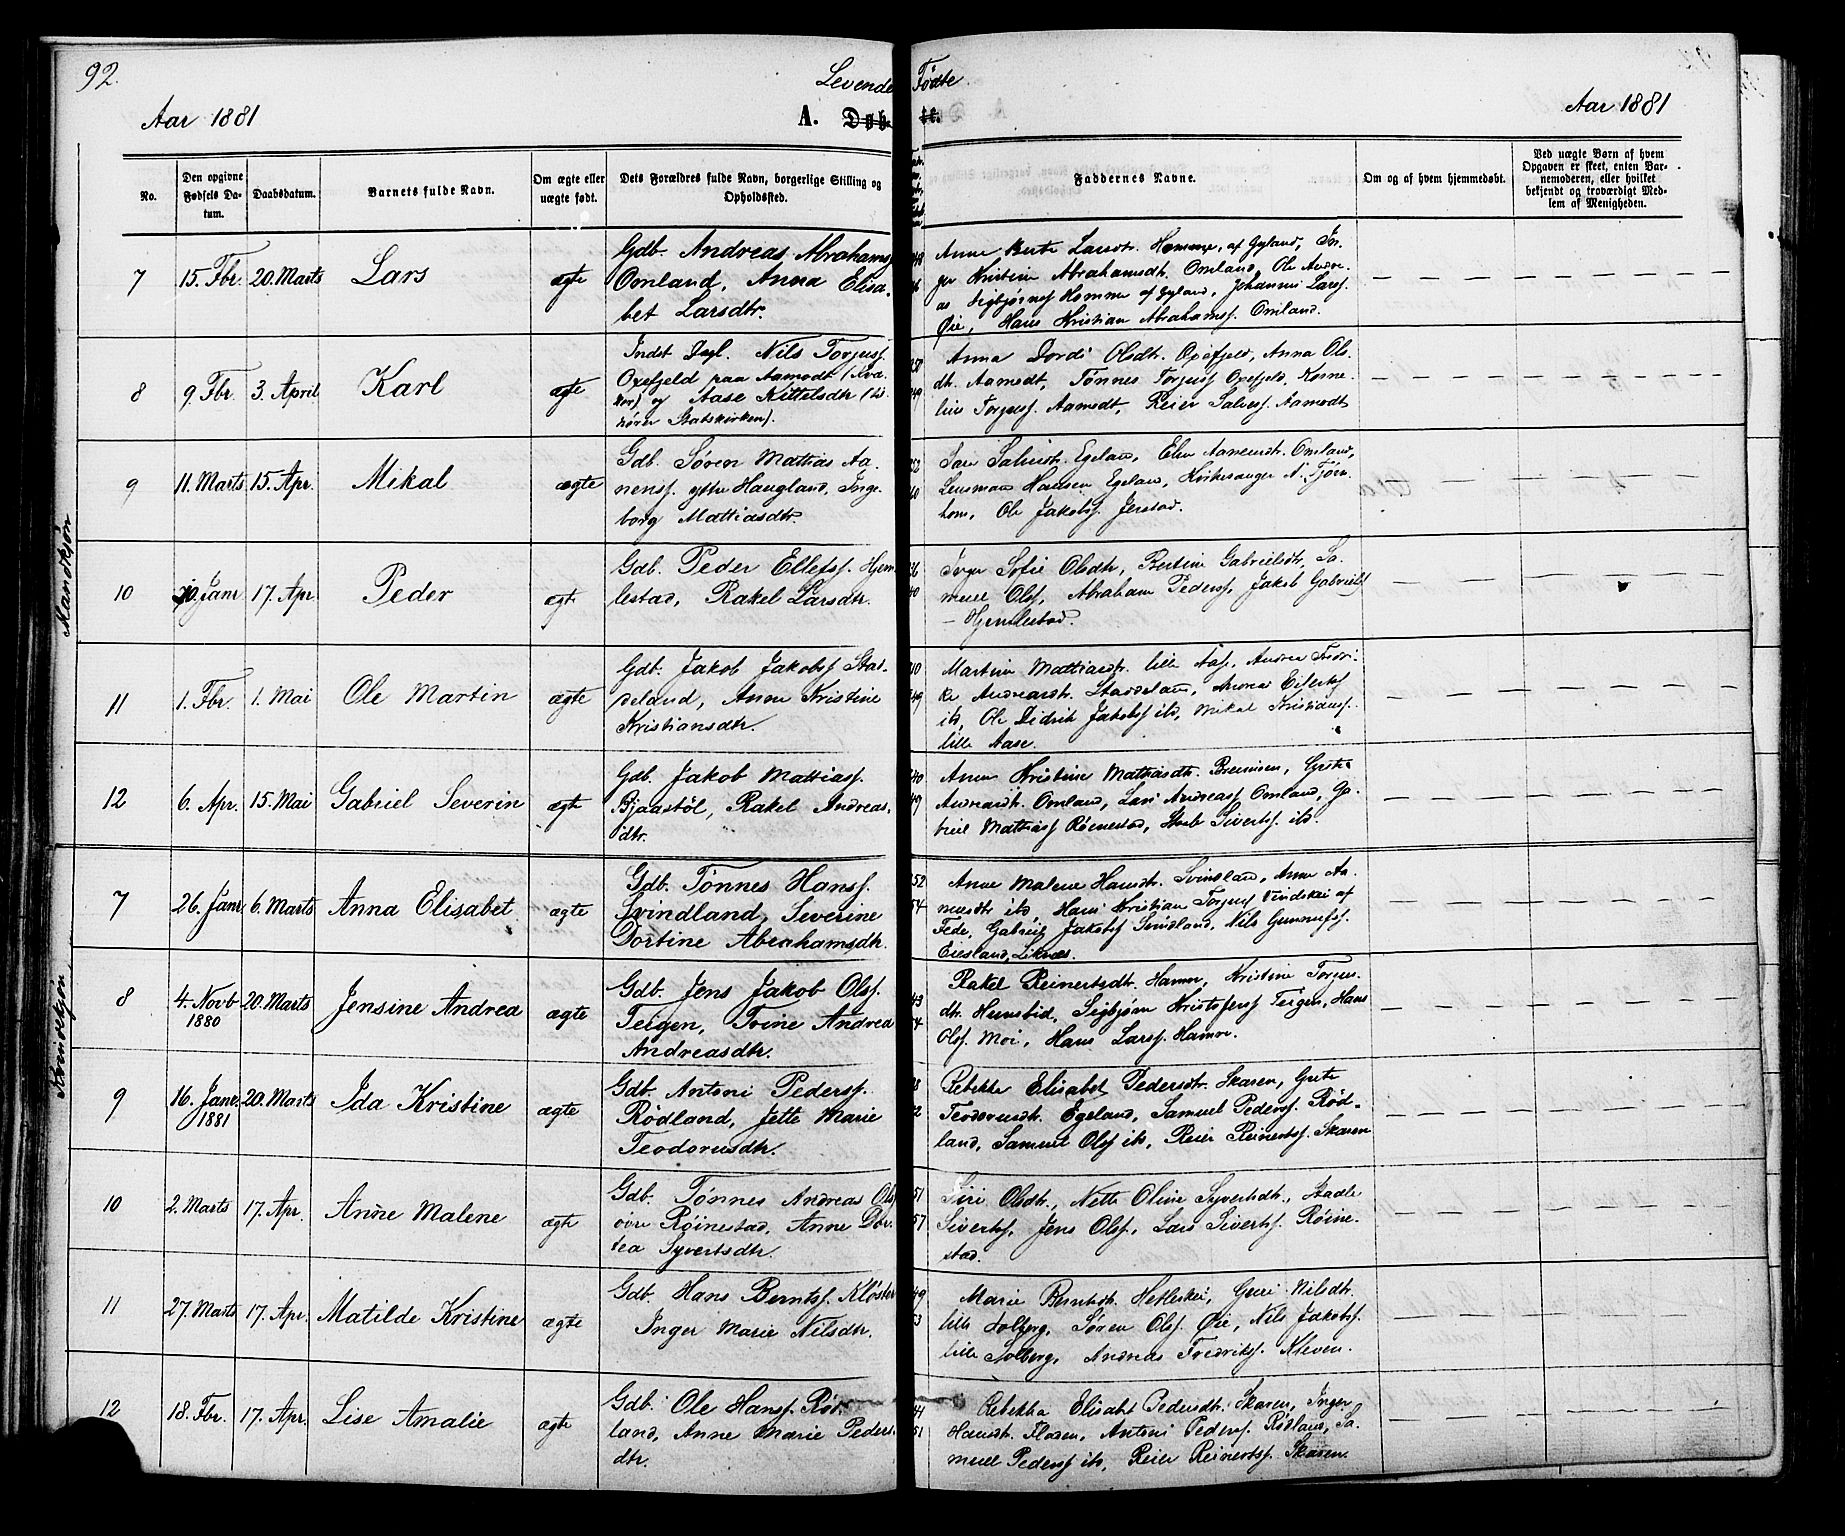 92.
Levende Fødte
Aar 1881
A. Døbte.
Aar 1881
No.
Den opgivne Fødsels Datum.
Daabsdatum.
Barnets fulde Navn.
Om ægte eller uægte født.
Dets Forældres fulde Navn, borgerlige Stilling og Opholdssted.
Faddernes Navne.
Om og af hvem hjemmedøbt.
Ved uægte Børn af hvem
Opgaven er skeet, enten Bar-
nemoderen, eller hvilket
bekjendt og troværdigt Med-
lem af Menigheden.
Mandkjøn
7 15. Fbr. 20. Marts Lars ægte
Gdb. Andreas Abrahamsf.
Omland, Anna Elisa-
bet Larsdtr.
Anne Berte Larsdtr. Homme, af Gyland, In-
ger Kristine Abrahamsdtr. Omland, Ole Andre-
as Sigbjørnsf Homme af Gyland, Johannes Larsf.
Øie, Hans Kristian Abrahamsf. Omland.
8 9. Fbr. 3. April Karl ægte
Indst Dagl. Nils Torjusf.
Oxefjeld paa Aamodt (Kvæ-
ker) og Aase Kittelsdtr (til-
hører Statskirken).
Anna Dordi Olsdtr. Oxefjeld, Anna Ols-
dtr. Aamodt, Tønnes Torjusf Oxefjeld, Korne-
lius Torjusf. Aamodt, Reier Salvesf. Aamodt
9 11. Marts 15. Apr. Mikal ægte
Gdb. Søren Mathias Aa-
nensf. ytre Haugland, Inge-
borg Mattiasdtr.
Egeland, Elen Aanensdtr. Omland,
Lensmand Hansen Egeland, Kirkesanger N. Tjørn-
hom, Ole Jakobsf. Jerstad.
10 30. Janr. 17. Apr. Peder ægte
Gdb. Peder Ellefsf. Hjem-
lestad, Rakel Larsdtr.
Inger Sofie Olsdtr, Bertine Gabrielsdtr, Sa-
muel Olsf, Abraham Pedersf, Jakob Gabrielsf
- Hjemlestad.
11 1. Fbr. 1. Mai Ole Martin ægte
Gdb. Jakob Jakobsf Stad-
deland, Anne Kristine
Kristiansdtr.
Martine Mattiasdtr. lille Aase, Andrea Fedri-
ke Andreasdtr. Staddeland, Eilertsf
ibd, Ole Didrik Jakobsf ibd, Mikal Kristiansf.
lille Aase.
12 6. Apr. 15. Mai Gabriel Severin ægte
Gdb. Jakob Mattiasf.
Bjaastøl, Rakel Andreas-
dtr.
Anne Kristine Mathiasdtr. Bremsen, Grete
Andreasdtr. Omland, Lars Andreasf Omland, Ga-
briel Mathiasf Røinestad, Sivertsf. ibd.
Kvindekjøn
7 26. Janr. 6. Marts Anna Elisabet ægte
Gdb. Tønnes Hansf.
Svindland, Severine
Dortine Abrahamsdtr.
Anne Malene Hansdtr. Svindland, Anne Aa-
nensdtr ibd, Hans Kristian Torjusf Vindskei af
Fede, Gabriel Jakobsf Svindland, Nils Gunnufsf.
Eiesland, Liknes.
8 4. Novb 1880 20. Marts Jensine Andrea ægte
Gdb. Jens Jakob Olsf.
Teigen, Trine Andrea
Andreasdtr.
Rakel Reinertsdtr. Hamre, Kristine Torjus-
dtr. Hunsbid, Sigbjørn Kristofersf Teigen, Hans
Olsf. Moi, Hans Larsf. Hamre.
9 16. Janr. 1881 20. Marts Ida Kristine ægte
Gdb. Antoni Pedersf.
Rødland, Jette Marie
Teodorusdtr.
Rebekka Elisabet Pedersdtr. Skaren, Grete
Teodorusdtr. Egeland, Samuel Pedersf. Rød-
land, Samuel Olsf ibd, Reier Reinertsf. Skaren
10 2. Marts 17. Apr. Anne Malene ægte
Gdb. Tønnes Andreas Olsf
øvre Røinestad, Anne Dor-
tea Syvertsdtr.
Siri Olsdtr, Nette Oline Syvertsdtr., Staale
Sivertsf, Jens Olsf, Lars Sivertsf. Røine-
stad.
11 27. Marts 17. Apr. Matilde Kristine ægte
Gdb. Hans Berntsf. Kloster
Inger Marie Nilsdtr.
Marie Berntsdtr. Hetleskei, Guri Nilsdtr.
lille Solberg, Søren Olsf. Øie, Nils Jakobsf.
lille Solberg, Andreas Fredriksf. Kleven.
12 18. Fbr. 17. Apr. Lise Amalie ægte
Gdb. Ole Hansf. Rød-
land, Anne Marie Peders-
dtr.
Rebekka Elisabet Pedersdtr. Skaren, Inger
Hansdtr. Floden, Antoni Pedersf. Rødland, Sa-
muel Pedersf ibd, Reier Reinertsf. Skaren.